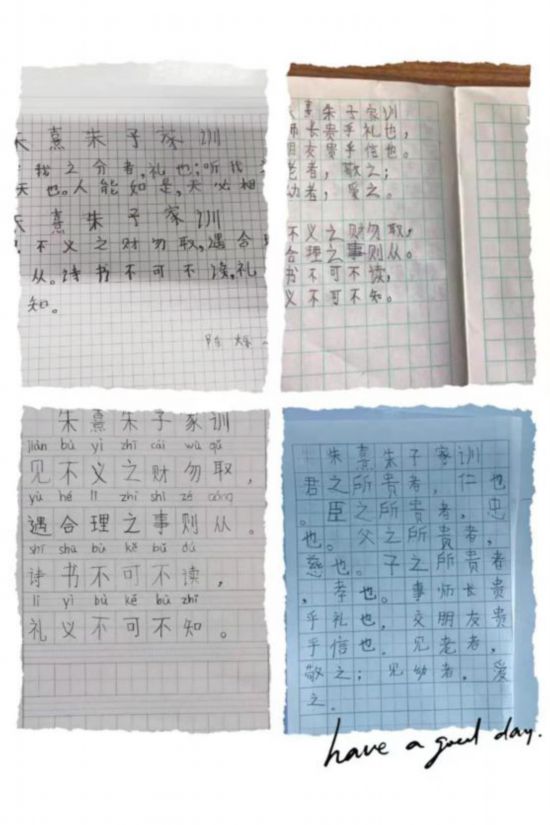 朱熹朱子家训
我之分者,礼也;听我
天也。人能如是,天必相
朱熹朱子家训
不义之财勿取,遇合
从。诗书不可不读,礼
知。
熹朱子家训
师长贵乎礼也,
朋友贵乎信也。
老者,敬之;
幼者,爱之。
不义之财勿取,
合理之事则从。
书不可不读,
义不可不知。
朱熹朱子家训
jiàn bù yì zhī cái wù qǔ
见不义之财勿取,
yù hé lǐ zhī shì zé cóng
遇合理之事则从。
shī shū bù kě bù dú
诗书不可不读,
lǐ yì bù kě bù zhī
礼义不可不知。
朱熹朱子家训
君之所贵者,仁也
。臣之所贵者,忠
也。父之所贵者,
慈也。子之所贵者
,孝也。事师长贵
乎礼也,交朋友贵
乎信也。见老者,
敬之;见幼者,爱
之。
have a good day.